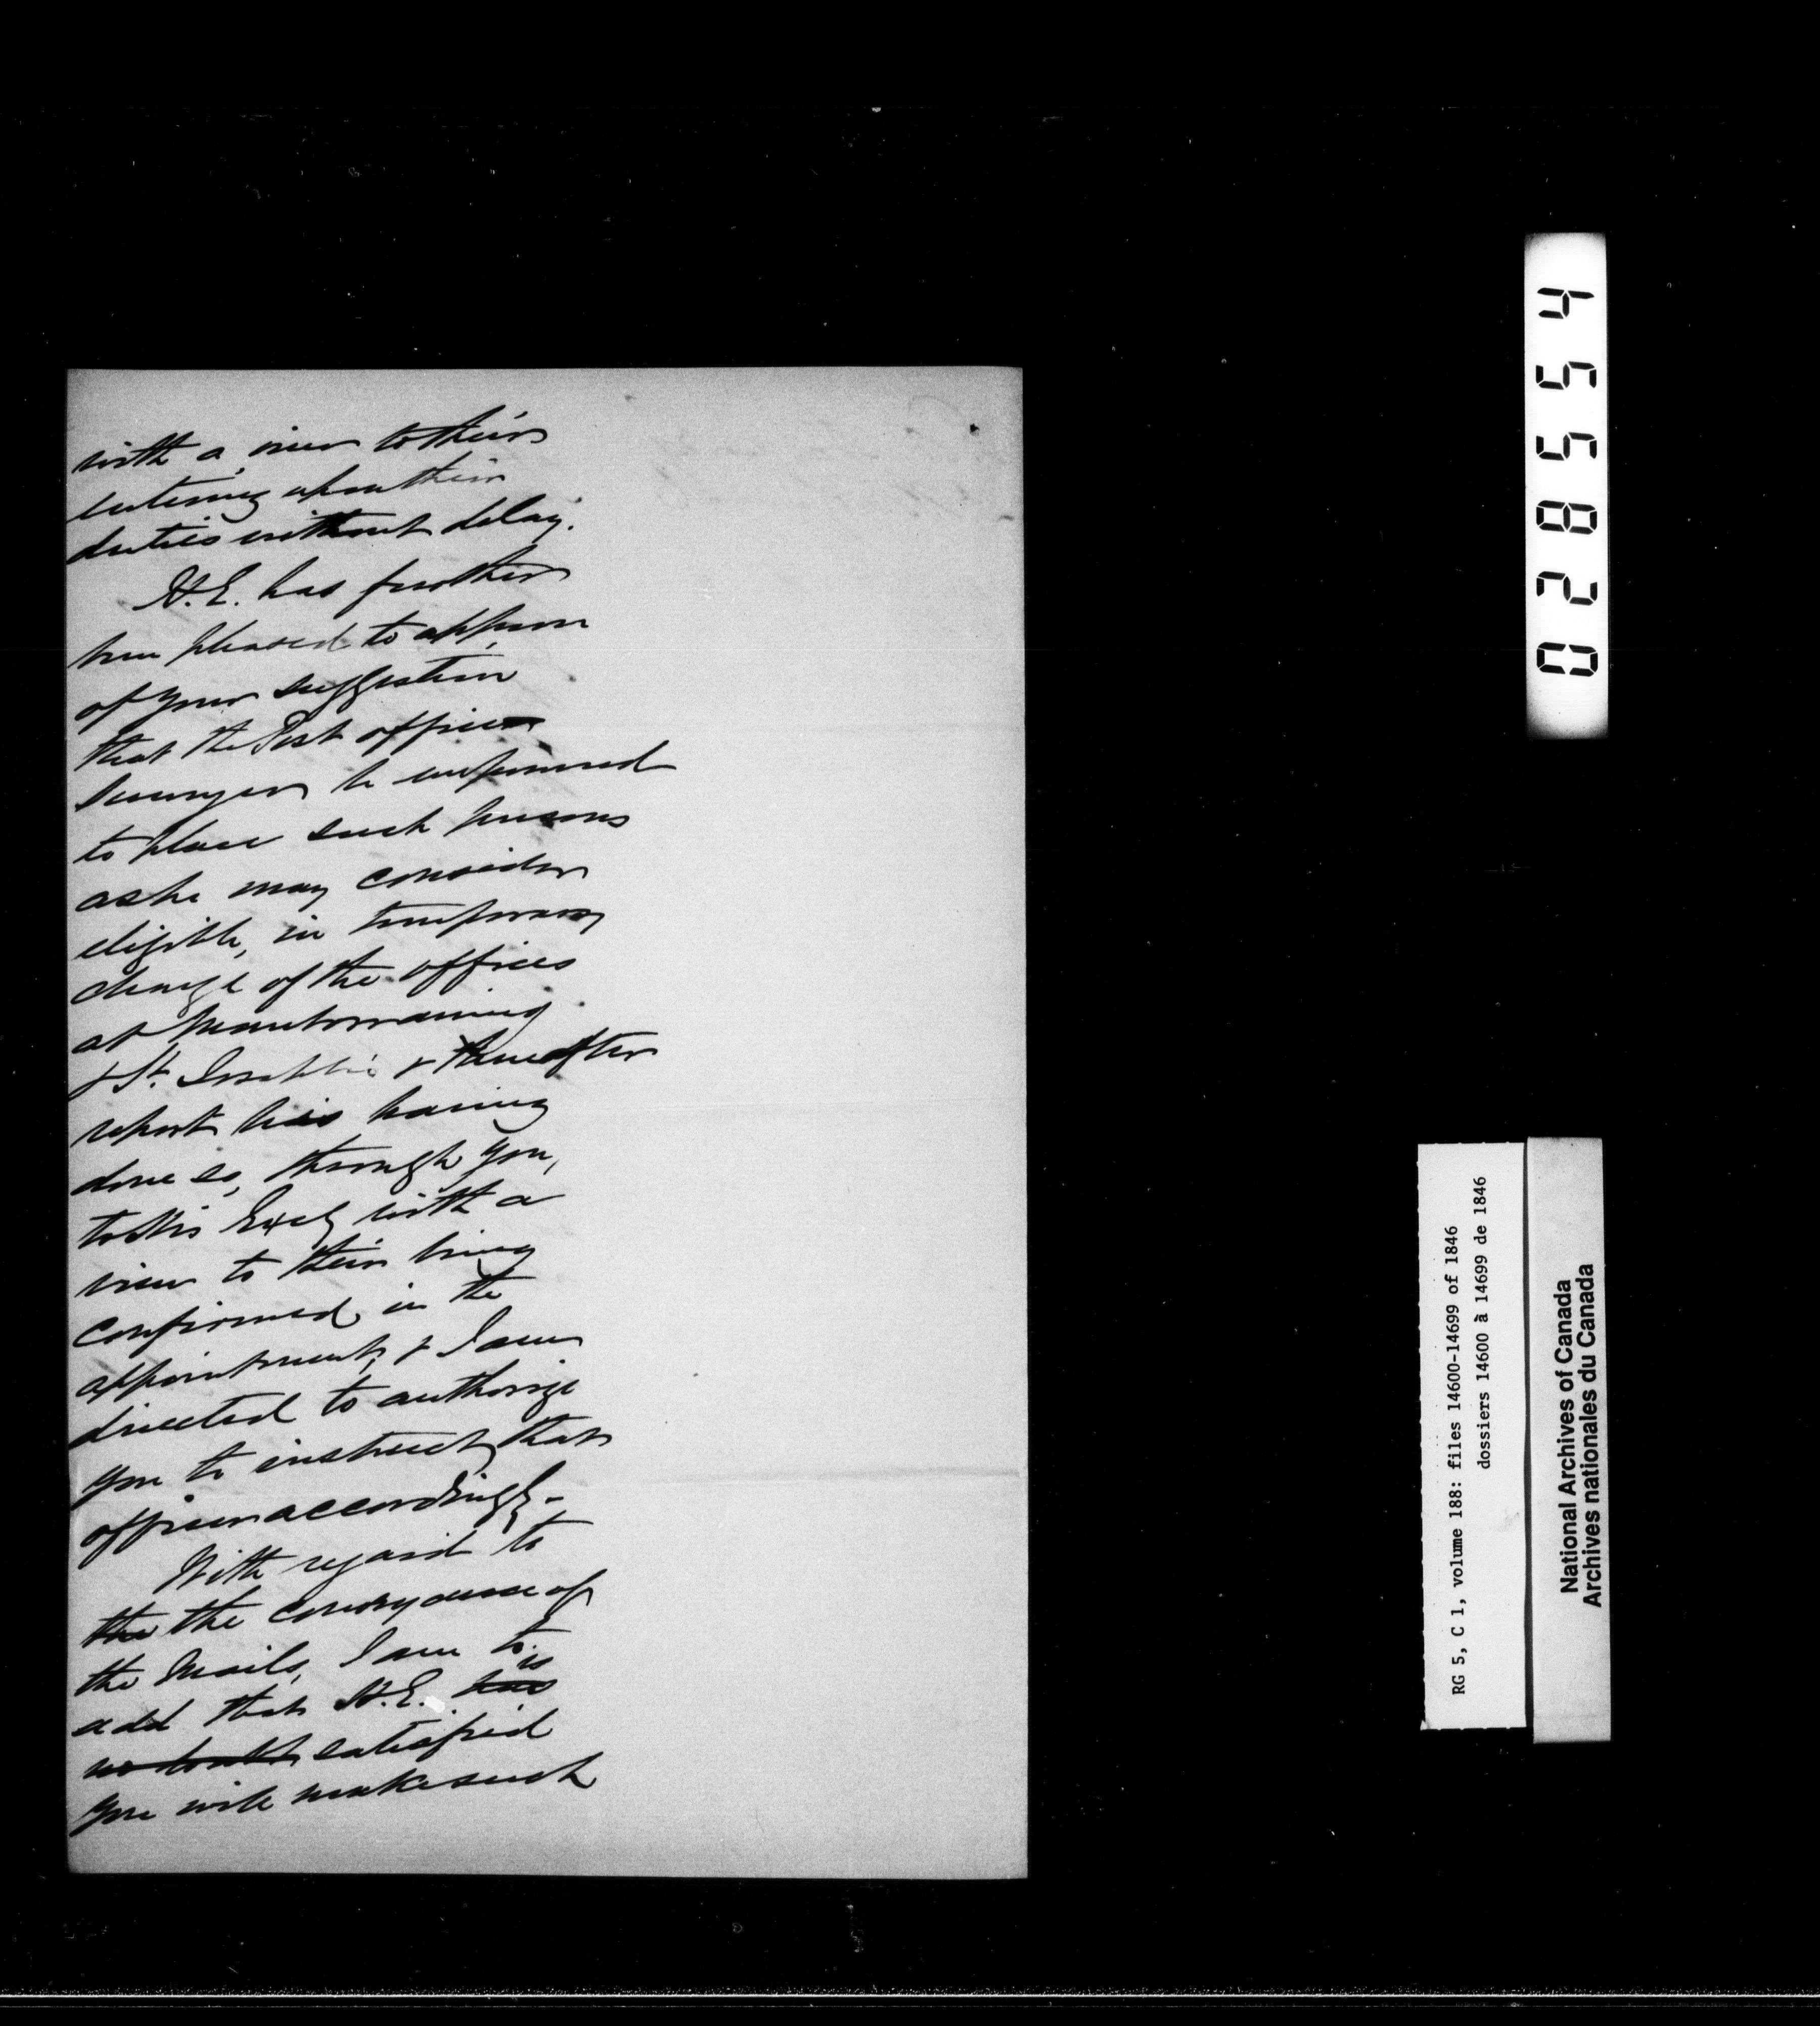 with a view to their
entering upon their
duties without delay.
H.E. has further
been pleased to approve
of your suggestion
that the Post office
Surveyor be empowered
to place such persons
as he may consider
eligible, in temporary
charge of the offices
at Manitowaning
& St. & thereafter
report his having
done so, through you,
to His Excy with a
view to their being
confirmed in the
appointment, & I am
directed to authorize
you to instruct that
officer accordingly.-
With regard to
the the conveyance of
the Mails, I am to
is
add that H.E. has
no doubt satisfied
you will make such
028554
RG 5, C 1, volume 188: files 14600-14699 of 1846
dossiers 14600 à 14699 de 1846
National Archives of Canada
Archives nationales du Canada